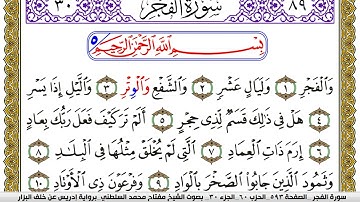 ٣٠ سُورَةُ الفَجْرِ ٨٩
بِسْمِ اللَّهِ الرَّحْمَٰنِ الرَّحِيمِ
وَالْفَجْرِ ١ وَلَيَالٍ عَشْرٍ ٢ وَالشَّفْعِ وَالْوِتْرِ ٣ وَالَّيْلِ إِذَا يَسْرِ
٤ هَلْ فِي ذَٰلِكَ قَسَمٌ لِّذِي حِجْرٍ ٥ أَلَمْ تَرَ كَيْفَ فَعَلَ رَبُّكَ بِعَادٍ
٦ إِرَمَ ذَاتِ الْعِمَادِ ٧ الَّتِي لَمْ يُخْلَقْ مِثْلُهَا فِي الْبِلَٰدِ ٨
وَثَمُودَ الَّذِينَ جَابُوا الصَّخْرَ بِالْوَادِ ٩ وَفِرْعَوْنَ ذِي الْأَوْتَادِ ١٠
سورة الفجر_الصفحة ٥٩٣_الحزب ٦٠_الجزء ٣٠_بصوت الشيخ مفتاح محمد السلطني_برواية إدريس عن خلف البزار